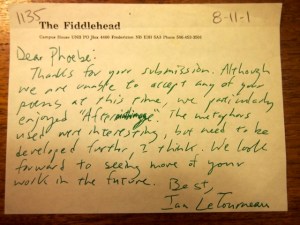 1135
8-11-1
The Fiddlehead
Campus House UNB PO Box 4400 Fredericton NB E3B 5A3 Phone 506-453-3501
Dear Phoebe:
Thanks for your submission. Although
we are unable to accept any of your
poems at this time, we particularly
enjoyed "After The metaphors
used were interesting, but need to be
developed further, I think. We look
forward to seeing more of your
work in the future.
Best,
Ian LeTourneau